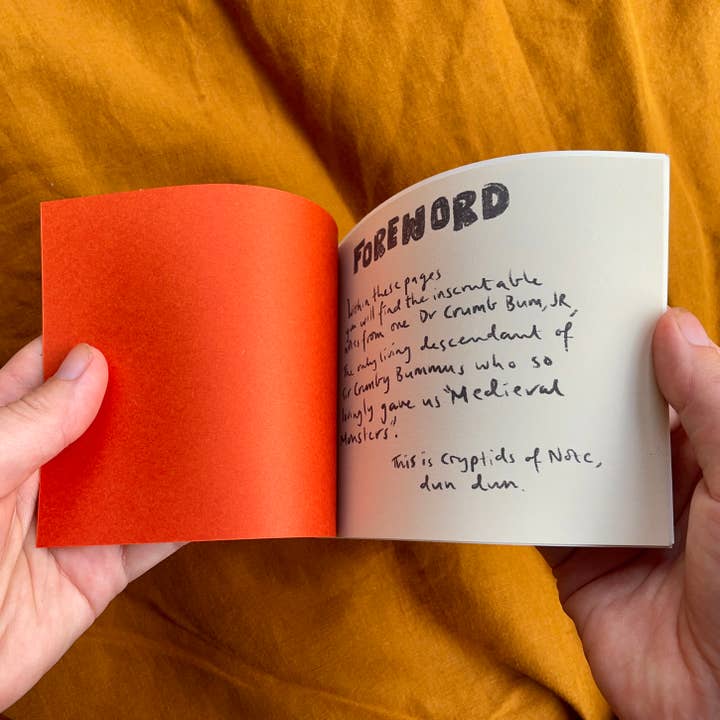 FOREWORD
Within these pages
you will find the inscrutable
notes from one Dr Crumb Bum, JR,
the only living descendant of
Sir Crumby Bummus who so
lovingly gave us "Medieval
Monsters".
This is Cryptids of Note,
dun dun.